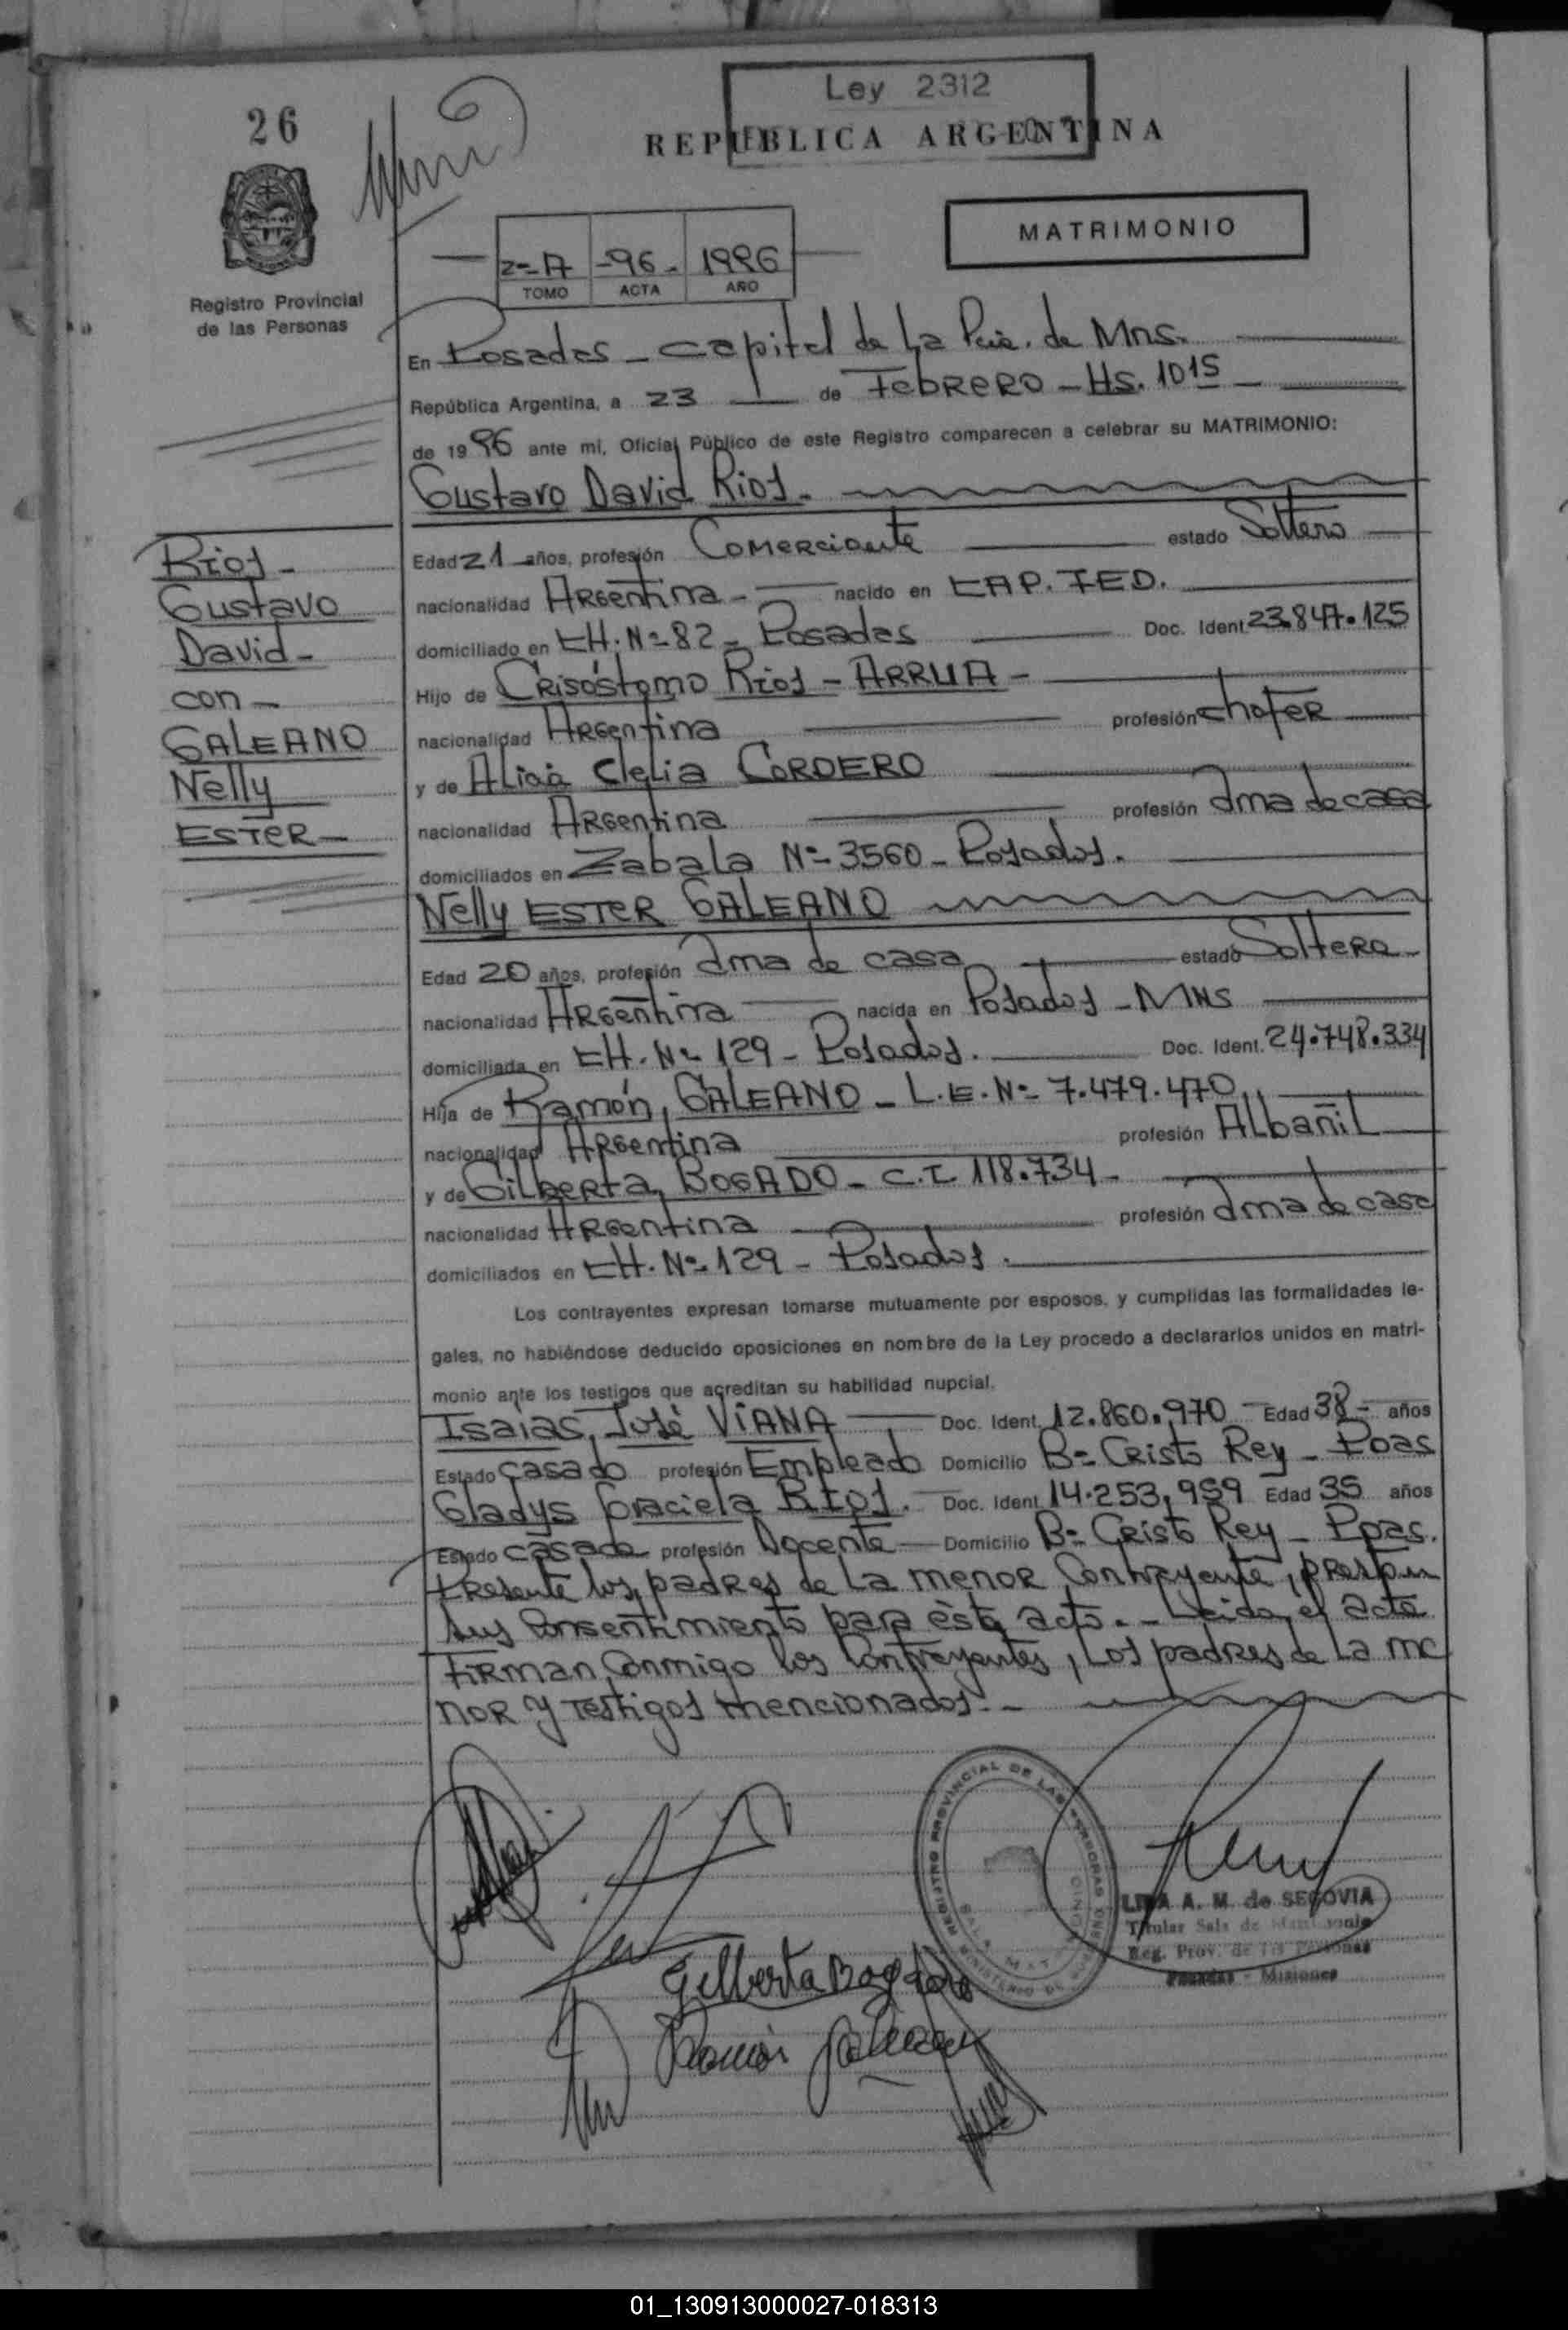 26
Ley 2312
REPUBLICA ARGENTINA
MATRIMONIO
2=A -96- 1996
TOMO ACTA AÑO
Registro Provincial
de las Personas
En Posadas - capital de La Pcia. de Mns.
República Argentina, a 23 de Febrero - Hs. 1015
de 1996 ante mi, Oficial Público de este Registro comparecen a celebrar su MATRIMONIO:
Gustavo David Rios.
Rios -
Gustavo
David -
con -
GALEANO
Nelly
ESTER -
Edad 21 años, profesión Comerciante estado Soltero
nacionalidad Argentina - nacido en CAP. FED.
domiciliado en CH. Nº 82 - Posadas Doc. Ident. 23.847.125
Hijo de Crisóstomo Rios - ARRUA -
nacionalidad Argentina profesión chofer
y de Alicia Clelia CORDERO
nacionalidad Argentina profesión Ama de casa
domiciliados en Zabala Nº 3560 - Posadas.
Nelly ESTER GALEANO
Edad 20 años, profesión Ama de casa estado Soltera
nacionalidad Argentina nacida en Posadas - MNS
domiciliada en CH. Nº 129 - Posadas. Doc. Ident. 24.748.334
Hija de Ramón, GALEANO - L.E. Nº 7.479.470
nacionalidad Argentina profesión Albañil
y de Gilberta, BOGADO - C.I. 118.734 -
nacionalidad Argentina profesión Ama de casa
domiciliados en CH. Nº 129 - Posados.
Los contrayentes expresan tomarse mutuamente por esposos, y cumplidas las formalidades le-
gales, no habiéndose deducido oposiciones en nombre de la Ley procedo a declararlos unidos en matri-
monio ante los testigos que acreditan su habilidad nupcial.
Isaias, José VIANA Doc. Ident. 12.860.970 Edad 38 años
Estado casado profesión Empleado Domicilio Bº Cristo Rey - Poas
Gladys Graciela Rios. Doc. Ident. 14.253,959 Edad 35 años
Estado casada profesión Docente Domicilio Bº Cristo Rey - Ppas.
Presente los padres de La menor Contrayente, prestan
sus Consentimiento para èste acto. - Leida el acta
firman Conmigo los Contrayentes, Los padres de La me
nor y testigos mencionados. -
REGISTRO PROVINCIAL DE LAS PERSONAS
LIDIA A. M. de SEGOVIA
Titular Sala de Matrimonio
Reg. Prov. de las Personas
Posadas - Misiones
Gilberta Bogado
Ramón Galeano
01_130913000027-018313